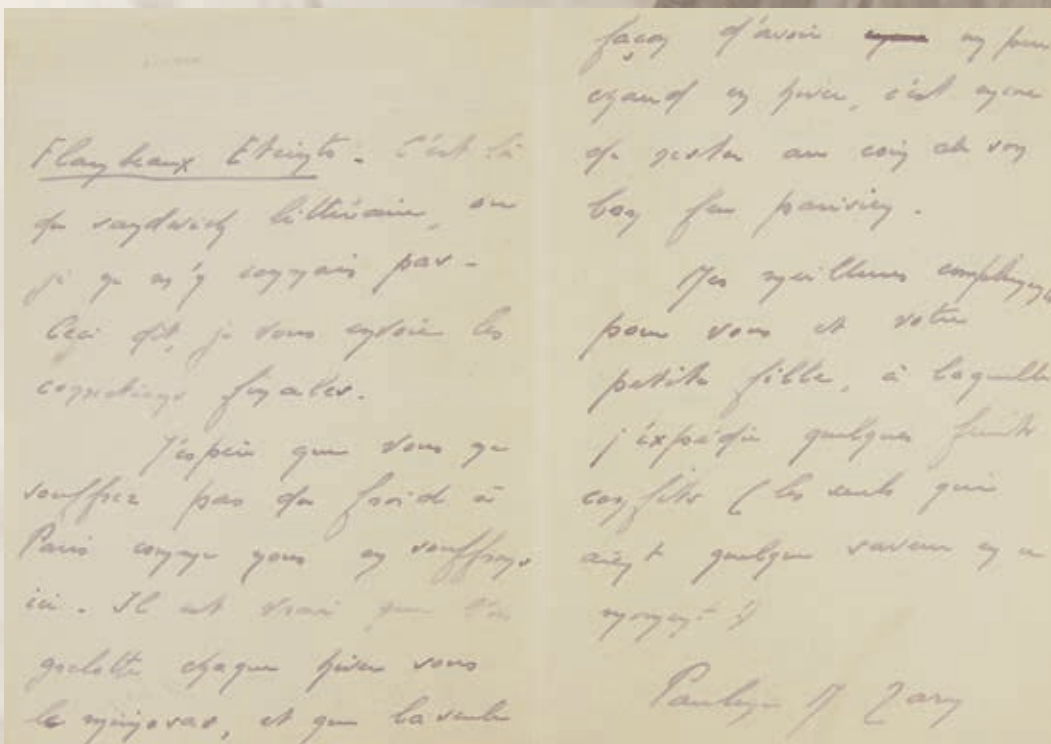 Flambeaux Eteints. C'est là
du sandwich littéraire, ou
je ne m'y connais pas.
Ceci dit, je vous envoie les
corrections finales.
J'espère que vous ne
souffrez pas du froid à
Paris comme nous en souffrons
ici. Il est vrai que l'on
grelotte chaque hiver sous
le mimosas, et que la seule
façon d'avoir un peu
chaud en hiver, c'est encore
de rester au coin de son
bon feu parisien.
Mes meilleurs compliments
pour vous et votre
petite fille, à laquelle
j'expédie quelques fruits
confits (les seuls qui
aient quelque saveur en ce
moment !)